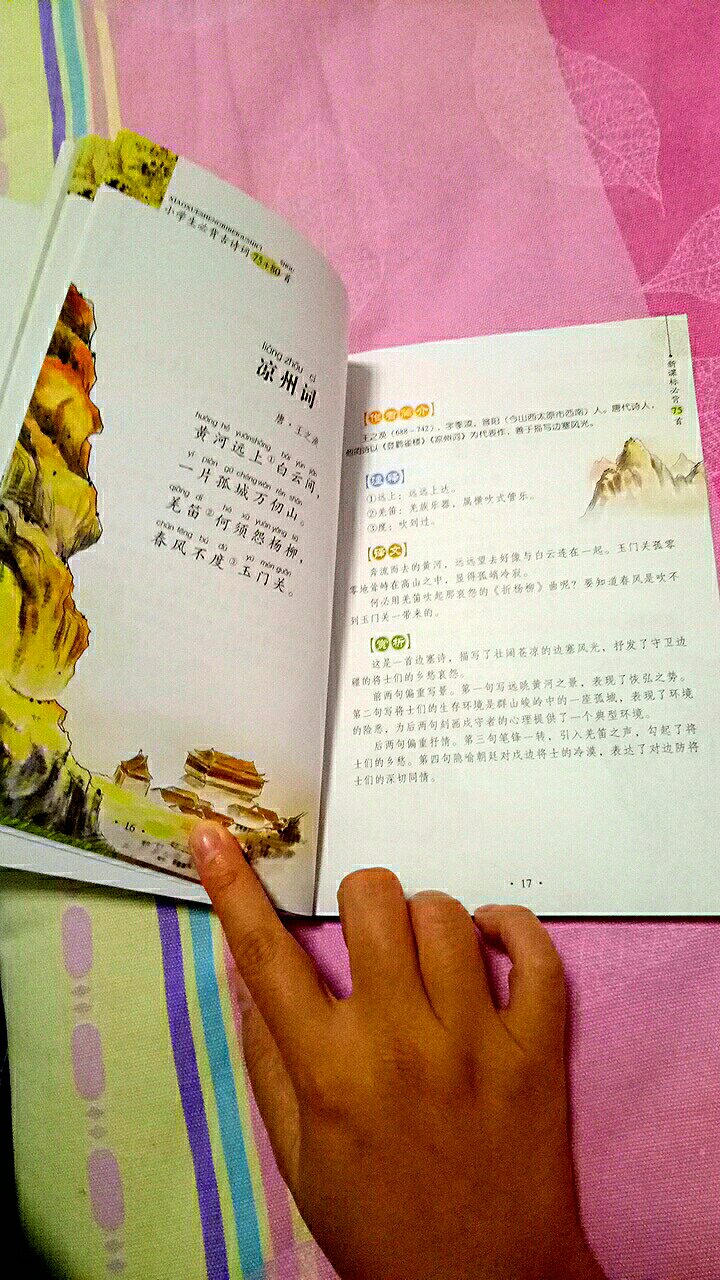 XIAOXUESHENGBIBEIGUSHICI SHOU
小学生必背古诗词75+80首
liáng zhōu cí
凉州词
唐·王之涣
huáng hé yuǎn shàng bái yún jiān
黄河远上①白云间，
yí piàn gū chéng wàn rèn shān
一片孤城万仞山。
qiāng dí hé xū yuàn yáng liǔ
羌笛②何须怨杨柳，
chūn fēng bú dù yù mén guān
春风不度③玉门关。
·16·
新课标必背75首
【作者简介】
王之涣（688－742），字季凌，晋阳（今山西太原市西南）人。唐代诗人，
他的诗以《登鹳雀楼》《凉州词》为代表作，善于描写边塞风光。
【注释】
①远上：远远上达。
②羌笛：羌族乐器，属横吹式管乐。
③度：吹到过。
【译文】
奔流而去的黄河，远远望去好像与白云连在一起。玉门关孤零
零地耸峙在高山之中，显得孤峭冷寂。
何必用羌笛吹起那哀怨的《折杨柳》曲呢？要知道春风是吹不
到玉门关一带来的。
【赏析】
这是一首边塞诗，描写了壮阔苍凉的边塞风光，抒发了守卫边
疆的将士们的乡愁哀怨。
前两句偏重写景。第一句写远眺黄河之景，表现了恢弘之势。
第二句写将士们的生存环境是群山峻岭中的一座孤城，表现了环境
的险恶，为后两句刻画戍守者的心理提供了一个典型环境。
后两句偏重抒情。第三句笔锋一转，引入羌笛之声，勾起了将
士们的乡愁。第四句隐喻朝廷对戍边将士的冷漠，表达了对边防将
士们的深切同情。
·17·